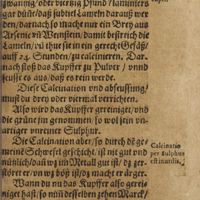 zwantzig/ oder viertzig Pfund/ laminiers
gar dünn/ daß subtiel Lameln daraus wer-
den/ darnach so macht nur ein Brey aus
Arsenic vñ Weinstein/ damit bestrich die
Lameln/ vñ thut sie in ein gerecht Gefäß/
auff 24. Stunden/ zu calcinieren/ Dar-
nach stoß das Kupffer zu Pulver/ vnnd
seusse es aus/ daß es rein werde.
Diese Calcination vnd abseussung/
must du drey oder viermal verrichten.
Also wird das Kupffer gereiniget/ vnd
die grüne jm genommen/ so wol ein an-
vnreiner Sulphur.
Die Calcination aber/ so durch dē ge-
meinē Schwefel geschicht/ ist nit gut vnd
nützlich/ dañ wz im Metall gut ist/ dz zer-
störet er/ vñ wz böß ist/ dz macht er ärger.
Wann du nu das Kupffer also gerei-
niget hast/ so nim desselben zehen Marck/
Calcinatio
per Sulphur
est inutilis.